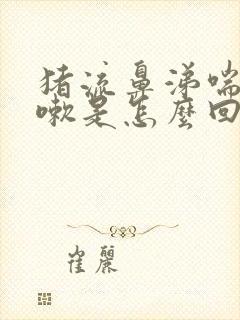 猪流鼻涕喘
嗽是怎麼回
崔麗